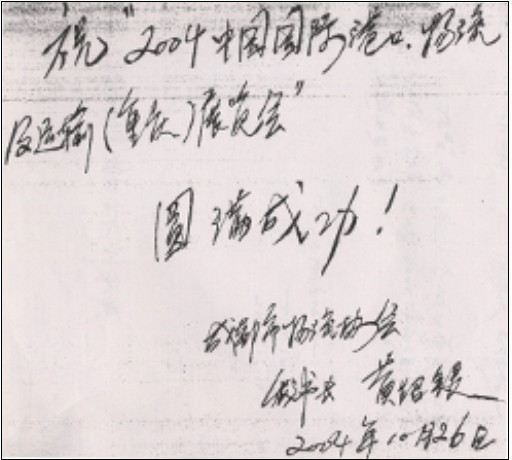 祝"2004中国国际港口、物流
及运输(重庆)展览会"
圆满成功!
成都市物流协会
秘书长 黄绍
2004年10月26日